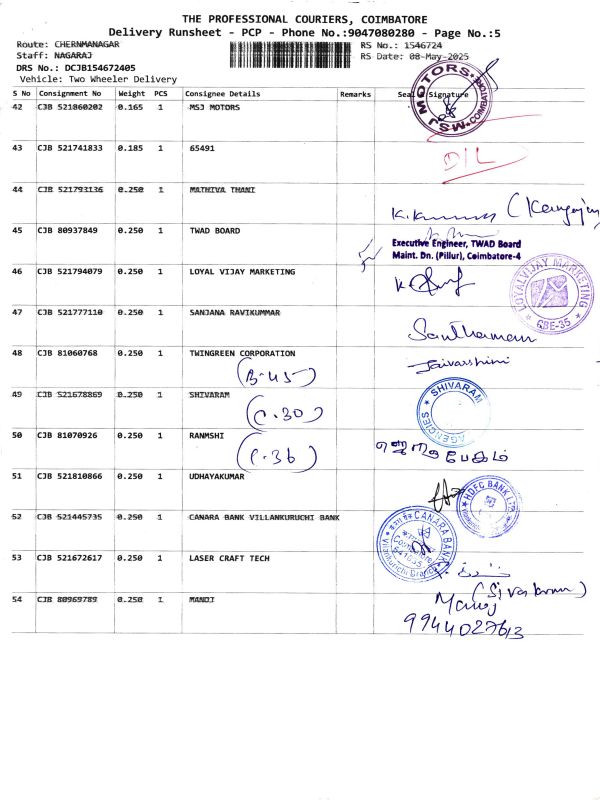 THE PROFESSIONAL COURIERS, COIMBATORE
Delivery Runsheet - PCP - Phone No.:9047080280 - Page No.:5
Route: CHERNMANAGAR RS No.: 1546724
Staff: NAGARAJ RS Date: 08-May-2025
DRS No.: DCJB154672405
Vehicle: Two Wheeler Delivery
S No Consignment No Weight PCS Consignee Details Remarks Seal & Signature
42 CJB 521860202 0.165 1 MSJ MOTORS
MSJ MOTORS COIMBATORE
43 CJB 521741833 0.185 1 65491
D/L
44 CJB 521793136 0.250 1 MATHIVA THANI
45 CJB 80937849 0.250 1 TWAD BOARD
Executive Engineer, TWAD Board
Maint. Dn. (Pillur), Coimbatore-4
46 CJB 521794079 0.250 1 LOYAL VIJAY MARKETING
LOYAL VIJAY MARKETING
CBE-35
47 CJB 521777110 0.250 1 SANJANA RAVIKUMMAR
48 CJB 81060768 0.250 1 TWINGREEN CORPORATION
(B-45)
Jaivarshini
49 CJB 521678869 0.250 1 SHIVARAM
SHIVARAM AGENCIES
50 CJB 81070926 0.250 1 RANMSHI
51 CJB 521810866 0.250 1 UDHAYAKUMAR
HDFC BANK LTD
52 CJB 521445735 0.250 1 CANARA BANK VILLANKURUCHI BANK
CANARA BANK
53 CJB 521672617 0.250 1 LASER CRAFT TECH
54 CJB 80969789 0.250 1 MANOJ
Manoj
9944027613